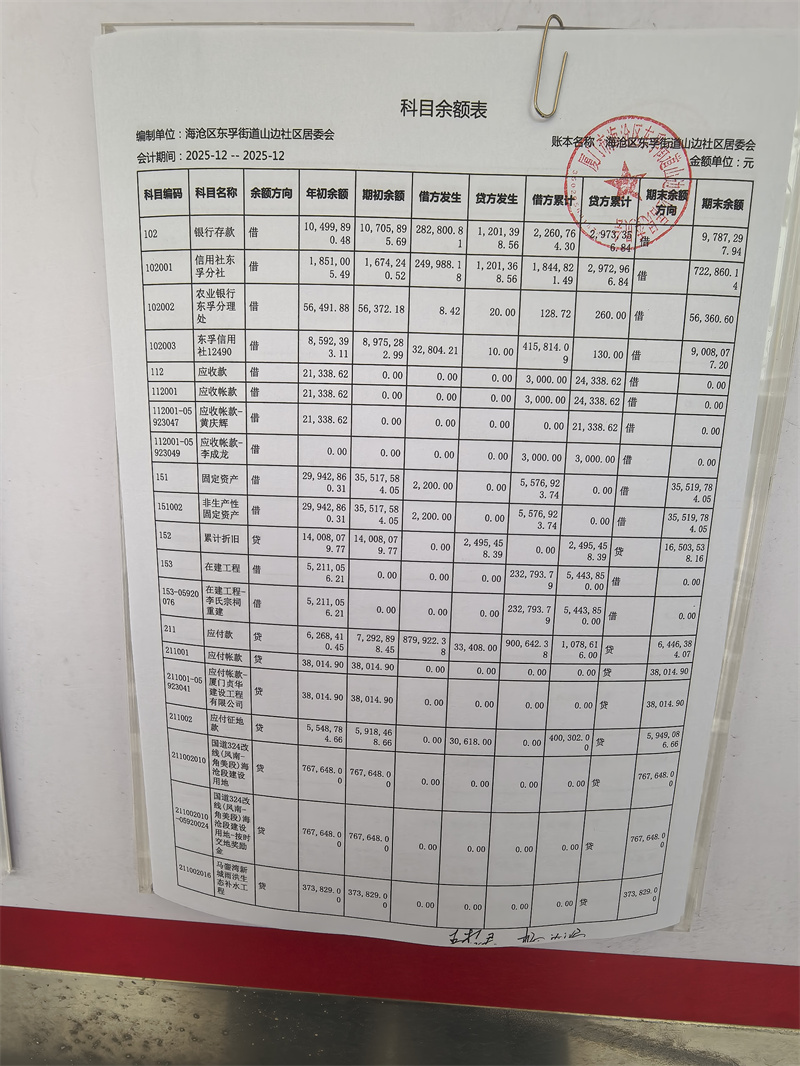 科目余额表
编制单位：海沧区东孚街道山边社区居委会 账本名称：海沧区东孚街道山边社区居委会
会计期间：2025-12 -- 2025-12 金额单位：元
科目编码 科目名称 余额方向 年初余额 期初余额 借方发生 贷方发生 借方累计 贷方累计 期末余额方向 期末余额
102 银行存款 借 10,499,890.48 10,705,895.69 282,800.81 1,201,398.56 2,260,764.30 2,973,356.84 借 9,787,297.94
102001 信用社东孚分社 借 1,851,005.49 1,674,240.52 249,988.18 1,201,368.56 1,844,821.49 2,972,966.84 借 722,860.14
102002 农业银行东孚分理处 借 56,491.88 56,372.18 8.42 20.00 128.72 260.00 借 56,360.60
102003 东孚信用社12490 借 8,592,393.11 8,975,282.99 32,804.21 10.00 415,814.09 130.00 借 9,008,077.20
112 应收款 借 21,338.62 0.00 0.00 0.00 3,000.00 24,338.62 借 0.00
112001 应收帐款 借 21,338.62 0.00 0.00 0.00 3,000.00 24,338.62 借 0.00
112001-05923047 应收帐款-黄庆辉 借 21,338.62 0.00 0.00 0.00 0.00 21,338.62 借 0.00
112001-05923049 应收帐款-李成龙 借 0.00 0.00 0.00 0.00 3,000.00 3,000.00 借 0.00
151 固定资产 借 29,942,860.31 35,517,584.05 2,200.00 0.00 5,576,923.74 0.00 借 35,519,784.05
151002 非生产性固定资产 借 29,942,860.31 35,517,584.05 2,200.00 0.00 5,576,923.74 0.00 借 35,519,784.05
152 累计折旧 贷 14,008,079.77 14,008,079.77 0.00 2,495,458.39 0.00 2,495,458.39 贷 16,503,538.16
153 在建工程 借 5,211,056.21 0.00 0.00 0.00 232,793.79 5,443,850.00 借 0.00
153-05920076 在建工程-李氏宗祠重建 借 5,211,056.21 0.00 0.00 0.00 232,793.79 5,443,850.00 借 0.00
211 应付款 贷 6,268,410.45 7,292,898.45 879,922.38 33,408.00 900,642.38 1,078,616.00 贷 6,446,384.07
211001 应付帐款 贷 38,014.90 38,014.90 0.00 0.00 0.00 0.00 贷 38,014.90
211001-05923041 应付帐款-厦门贞华建设工程有限公司 贷 38,014.90 38,014.90 0.00 0.00 0.00 0.00 贷 38,014.90
211002 应付征地款 贷 5,548,784.66 5,918,468.66 0.00 30,618.00 0.00 400,302.00 贷 5,949,086.66
211002010 国道324改线(凤南-角美段)海沧段建设用地 贷 767,648.00 767,648.00 0.00 0.00 0.00 0.00 贷 767,648.00
211002010-05920024 国道324改线(凤南-角美段)海沧段建设用地-按时交地奖励金 贷 767,648.00 767,648.00 0.00 0.00 0.00 0.00 贷 767,648.00
211002016 马銮湾新城雨洪生态补水工程 贷 373,829.00 373,829.00 0.00 0.00 0.00 0.00 贷 373,829.00